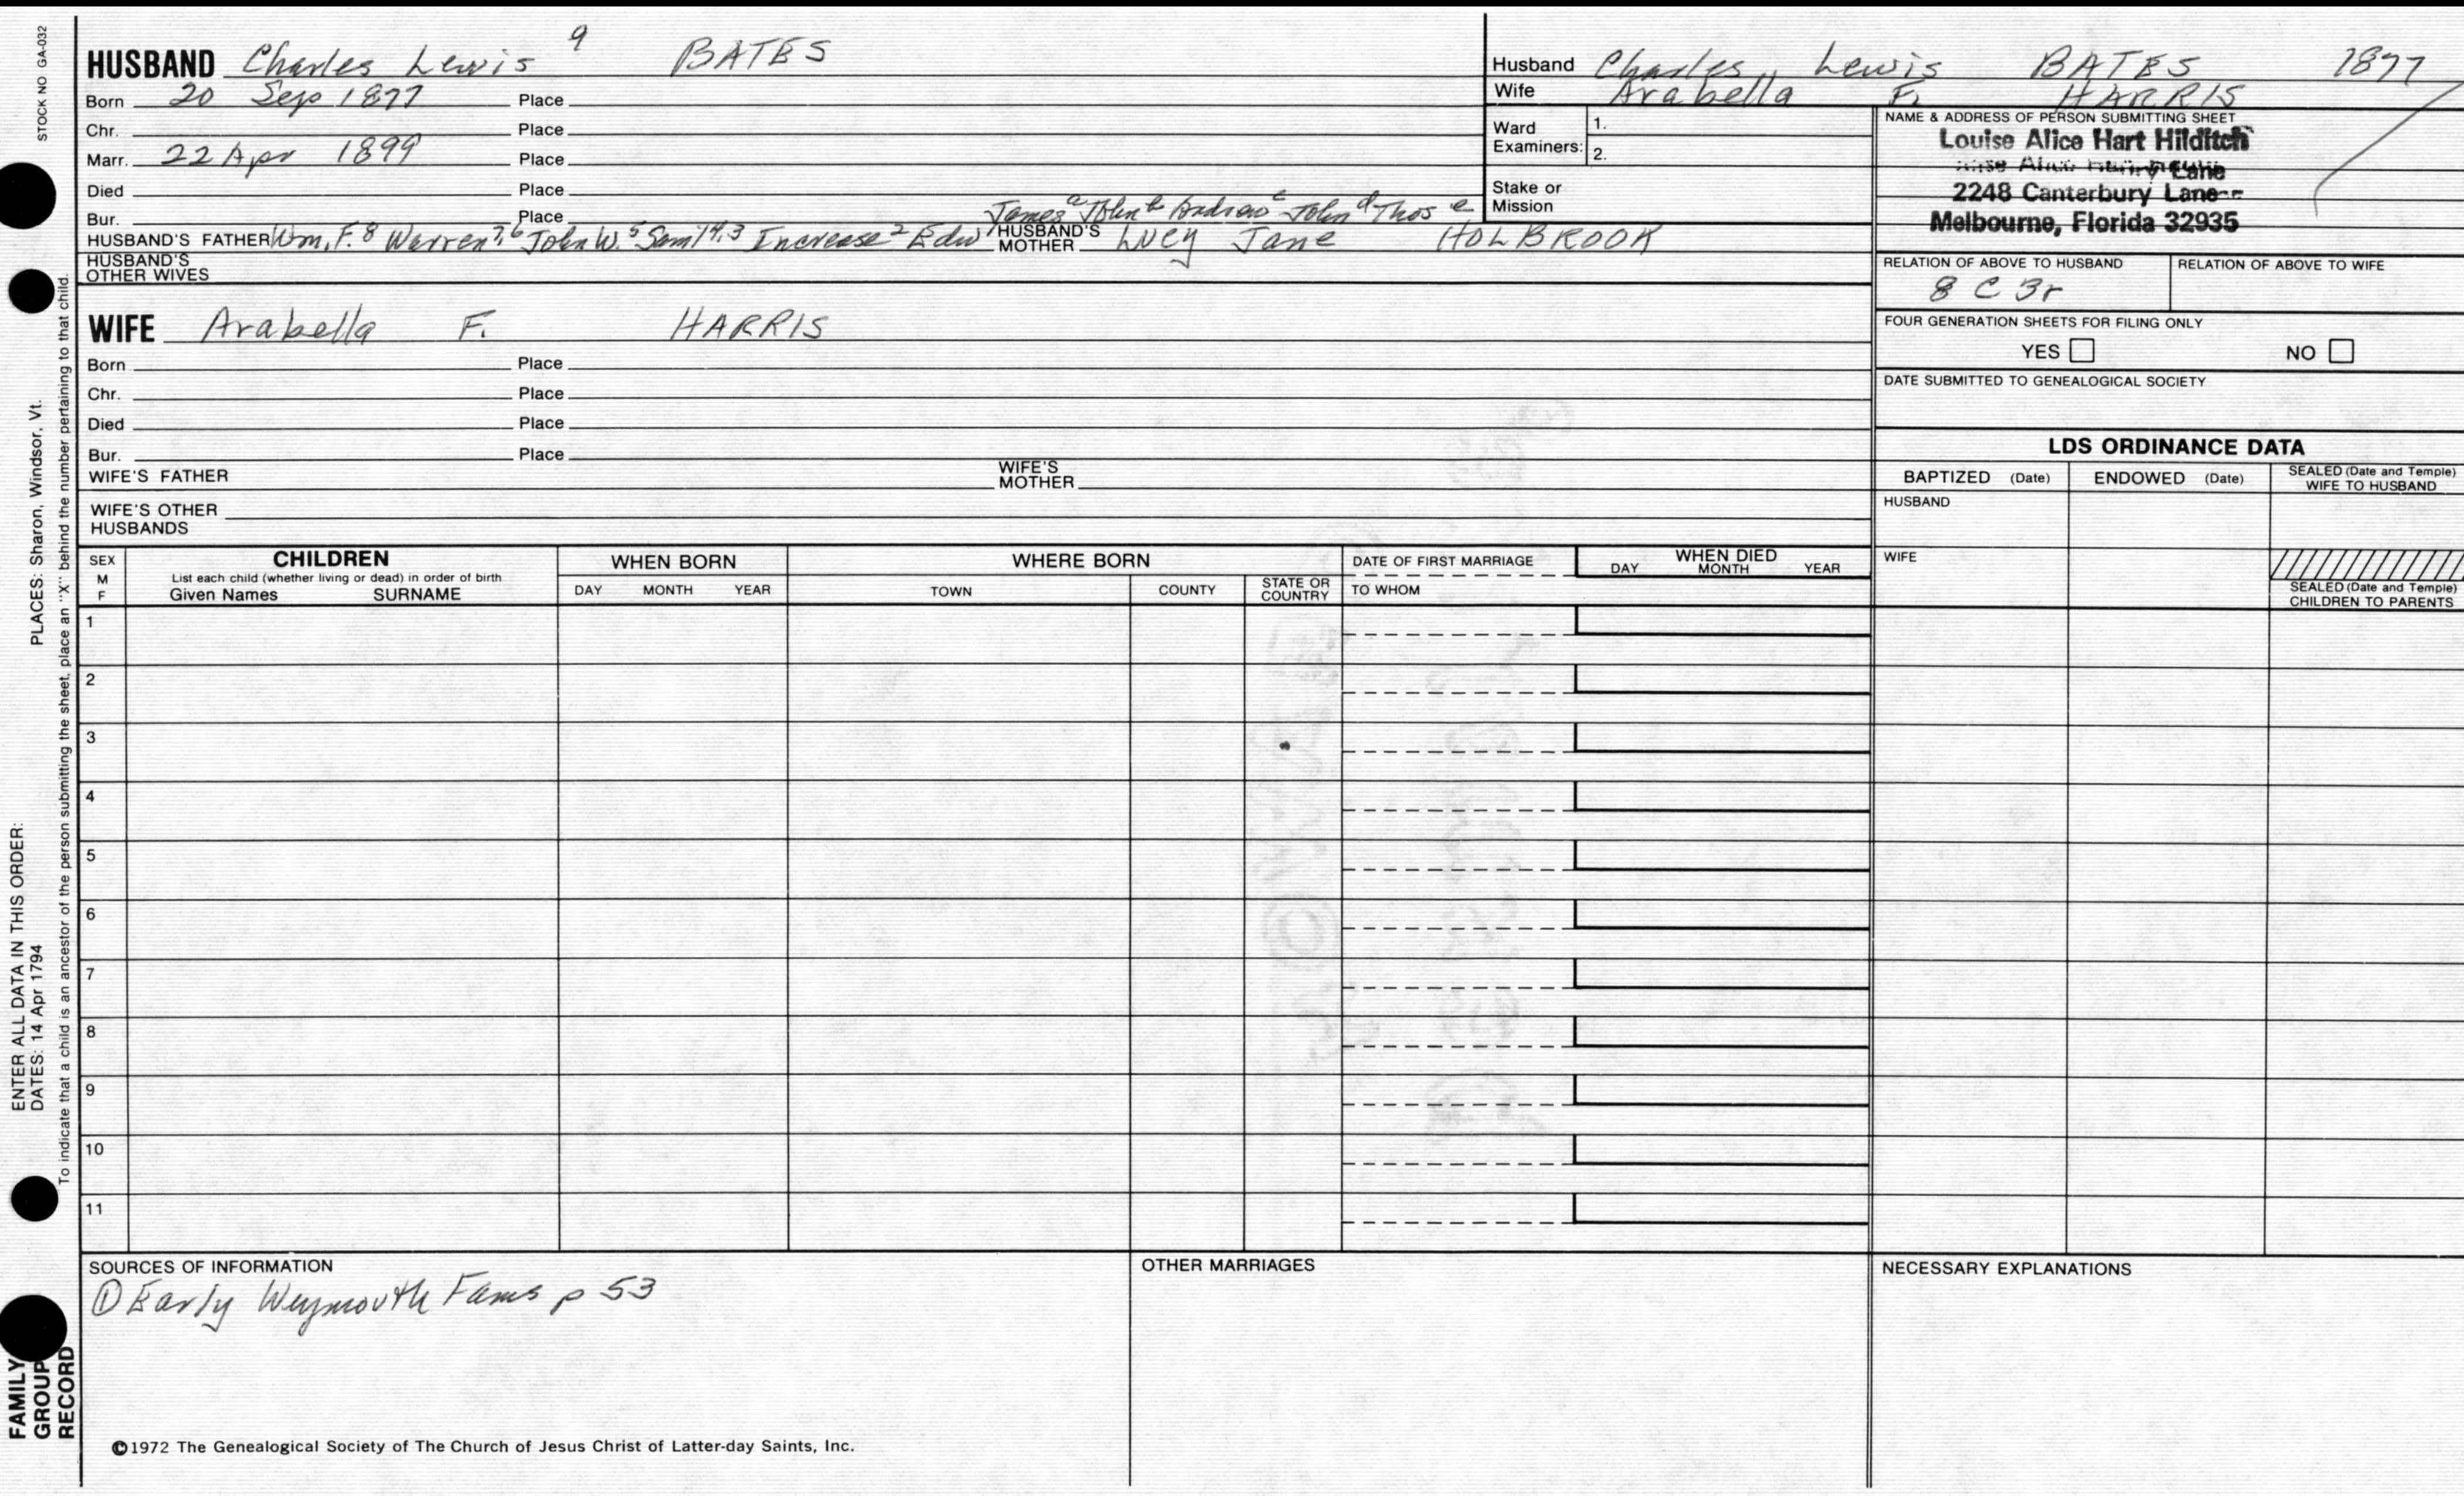 STOCK NO GA-032
HUSBAND Charles Lewis 9 BATES
Born 20 Sep 1877 Place
Chr. Place
Marr. 22 Apr 1899 Place
Died Place
Bur. Place
James a John b Andrew c John d Thos e
HUSBAND'S FATHER Wm. F. 8 Warren 7,6 John W. 5 Saml 4,3 Increase 2 Edw 1 HUSBAND'S MOTHER Lucy Jane HOLBROOK
HUSBAND'S OTHER WIVES
WIFE Arabella F. HARRIS
Born Place
Chr. Place
Died Place
Bur. Place
WIFE'S FATHER WIFE'S MOTHER
WIFE'S OTHER HUSBANDS
Husband Charles Lewis BATES 1877
Wife Arabella F. HARRIS
Ward Examiners: 1.
2.
Stake or Mission
NAME & ADDRESS OF PERSON SUBMITTING SHEET
Louise Alice Hart Hilditch
2248 Canterbury Lane
Melbourne, Florida 32935
RELATION OF ABOVE TO HUSBAND RELATION OF ABOVE TO WIFE
8 C 3r
FOUR GENERATION SHEETS FOR FILING ONLY
YES NO
DATE SUBMITTED TO GENEALOGICAL SOCIETY
LDS ORDINANCE DATA
BAPTIZED (Date) ENDOWED (Date) SEALED (Date and Temple) WIFE TO HUSBAND
HUSBAND
WIFE
SEALED (Date and Temple) CHILDREN TO PARENTS
SEX M F CHILDREN WHEN BORN WHERE BORN DATE OF FIRST MARRIAGE WHEN DIED
List each child (whether living or dead) in order of birth
Given Names SURNAME DAY MONTH YEAR TOWN COUNTY STATE OR COUNTRY TO WHOM DAY MONTH YEAR
1
2
3
4
5
6
7
8
9
10
11
SOURCES OF INFORMATION OTHER MARRIAGES NECESSARY EXPLANATIONS
① Early Weymouth Fams p 53
©1972 The Genealogical Society of The Church of Jesus Christ of Latter-day Saints, Inc.
FAMILY GROUP RECORD
ENTER ALL DATA IN THIS ORDER:
DATES: 14 Apr 1794 PLACES: Sharon, Windsor, Vt.
To indicate that a child is an ancestor of the person submitting the sheet, place an "X" behind the number pertaining to that child.